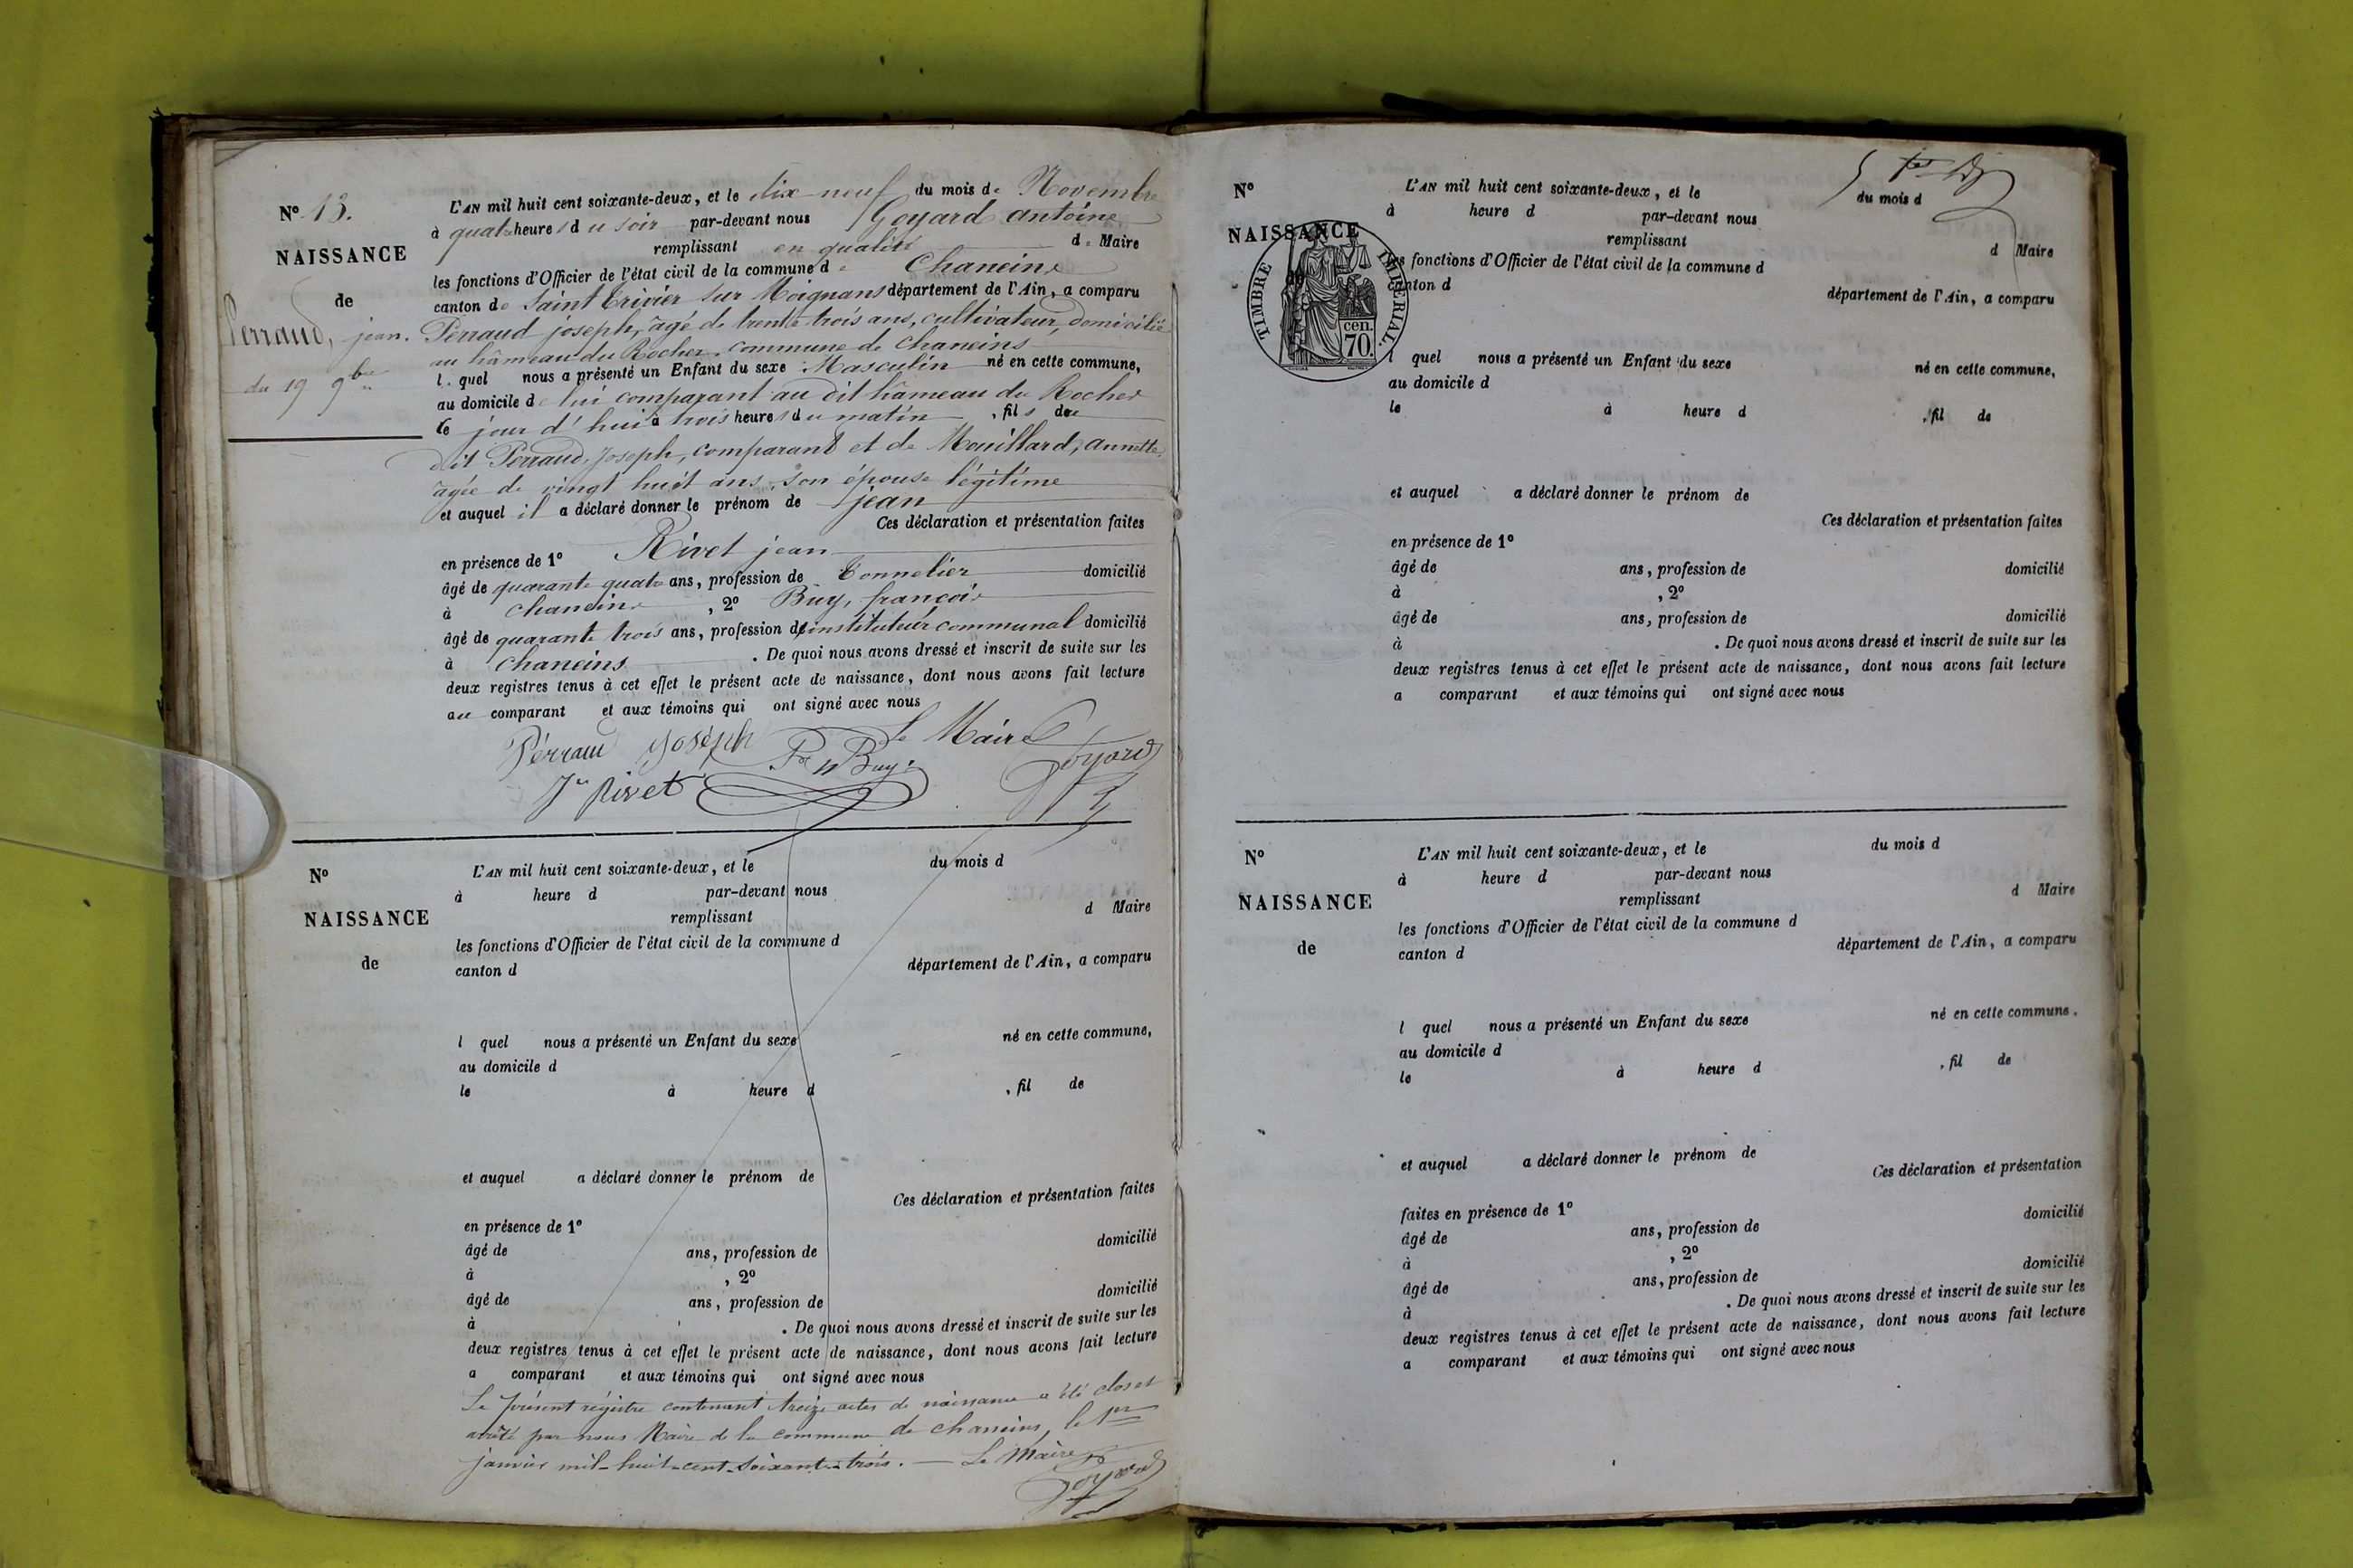 N° 13.
NAISSANCE
de
Perraud, jean.
du 19 9bre
L'AN mil huit cent soixante-deux, et le dix neuf du mois de Novembre
à quatre heures du soir par-devant nous Goyard antoine
remplissant en qualité de Maire
les fonctions d'Officier de l'état civil de la commune de Chaneins
canton de Saint Trivier sur Moignans département de l'Ain, a comparu
Perraud joseph, âgé de trente trois ans, cultivateur, domicilié
au hâmeau du Rocher, commune de Chaneins
lequel nous a présenté un Enfant du sexe Masculin né en cette commune,
au domicile de lui comparant au dit hâmeau du Rocher
le jour d'hui à trois heures du matin, fils du
dit Perraud, Joseph, comparant et de Mouillard, annette,
agée de vingt huit ans, son épouse légitime
et auquel il a déclaré donner le prénom de jean
Ces déclaration et présentation faites
en présence de 1° Rivet jean
âgé de quarante quatre ans, profession de tonnelier domicilié
à chaneins, 2° Buy, françois
âgé de quarante trois ans, profession d'instituteur communal domicilié
à chaneins. De quoi nous avons dressé et inscrit de suite sur les
deux registres tenus à cet effet le présent acte de naissance, dont nous avons fait lecture
au comparant et aux témoins qui ont signé avec nous
Perraud Joseph Buy. Le Maire
Jn Rivet Goyard
N°
NAISSANCE
de
L'AN mil huit cent soixante-deux, et le du mois d
à heure d par-devant nous
remplissant d Maire
les fonctions d'Officier de l'état civil de la commune d
canton d département de l'Ain, a comparu
l quel nous a présenté un Enfant du sexe né en cette commune,
au domicile d
le à heure d , fil de
et auquel a déclaré donner le prénom de
Ces déclaration et présentation faites
en présence de 1°
âgé de ans, profession de domicilié
à , 2°
âgé de ans, profession de domicilié
à . De quoi nous avons dressé et inscrit de suite sur les
deux registres tenus à cet effet le présent acte de naissance, dont nous avons fait lecture
a comparant et aux témoins qui ont signé avec nous
Le présent régistre contenant treize actes de naissance a été clos et
arrêté par nous Maire de la commune de chaneins, le 1er
janvier mil-huit-cent-soixante-trois. — Le Maire
Goyard
N°
NAISSANCE
de
TIMBRE IMPERIAL.
70. cen.
L'AN mil huit cent soixante-deux, et le du mois d
à heure d par-devant nous
remplissant d Maire
les fonctions d'Officier de l'état civil de la commune d
canton d département de l'Ain, a comparu
l quel nous a présenté un Enfant du sexe né en cette commune,
au domicile d
le à heure d , fil de
et auquel a déclaré donner le prénom de
Ces déclaration et présentation faites
en présence de 1°
âgé de ans, profession de domicilié
à , 2°
âgé de ans, profession de domicilié
à . De quoi nous avons dressé et inscrit de suite sur les
deux registres tenus à cet effet le présent acte de naissance, dont nous avons fait lecture
a comparant et aux témoins qui ont signé avec nous
N°
NAISSANCE
de
L'AN mil huit cent soixante-deux, et le du mois d
à heure d par-devant nous
remplissant d Maire
les fonctions d'Officier de l'état civil de la commune d
canton d département de l'Ain, a comparu
l quel nous a présenté un Enfant du sexe né en cette commune.
au domicile d
le à heure d , fil de
et auquel a déclaré donner le prénom de
Ces déclaration et présentation
faites en présence de 1° domicilié
âgé de ans, profession de
à , 2° domicilié
âgé de ans, profession de
à . De quoi nous avons dressé et inscrit de suite sur les
deux registres tenus à cet effet le présent acte de naissance, dont nous avons fait lecture
a comparant et aux témoins qui ont signé avec nous